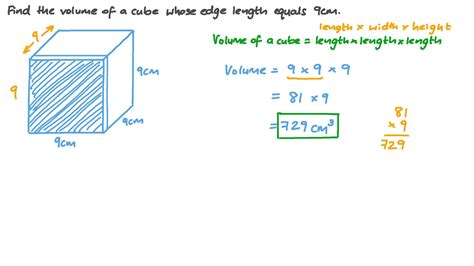 Find the volume of a cube whose edge length equals 9cm.
length × width × height
Volume of a cube = length × length × length
9
9
9cm
9cm
9cm
Volume = 9 × 9 × 9
= 81 × 9
= 729 cm³
81
× 9
729